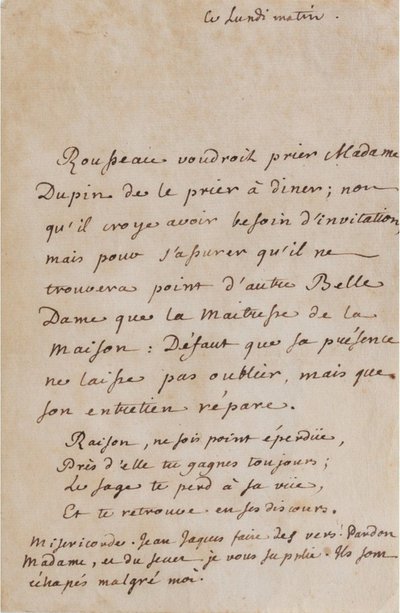 Ce Lundi matin.
Rousseau voudroit prier Madame
Dupin de le prier à diner ; non
qu'il croye avoir besoin d'invitation,
mais pour s'assurer qu'il ne
trouvera point d'autre Belle
Dame que la Maitresse de la
Maison : Défaut que sa présence
ne laisse pas oublier, mais que
son entretien répare.
Raison, ne sois point éperdüe,
Près d'elle tu gagnes toujours ;
Le sage te perd à sa vüe,
Et te retrouve en ses discours.
Misericorde. Jean Jaques faire des vers ! Pardon
Madame, et du secret je vous supplie. Ils sont
échapés malgré moi.